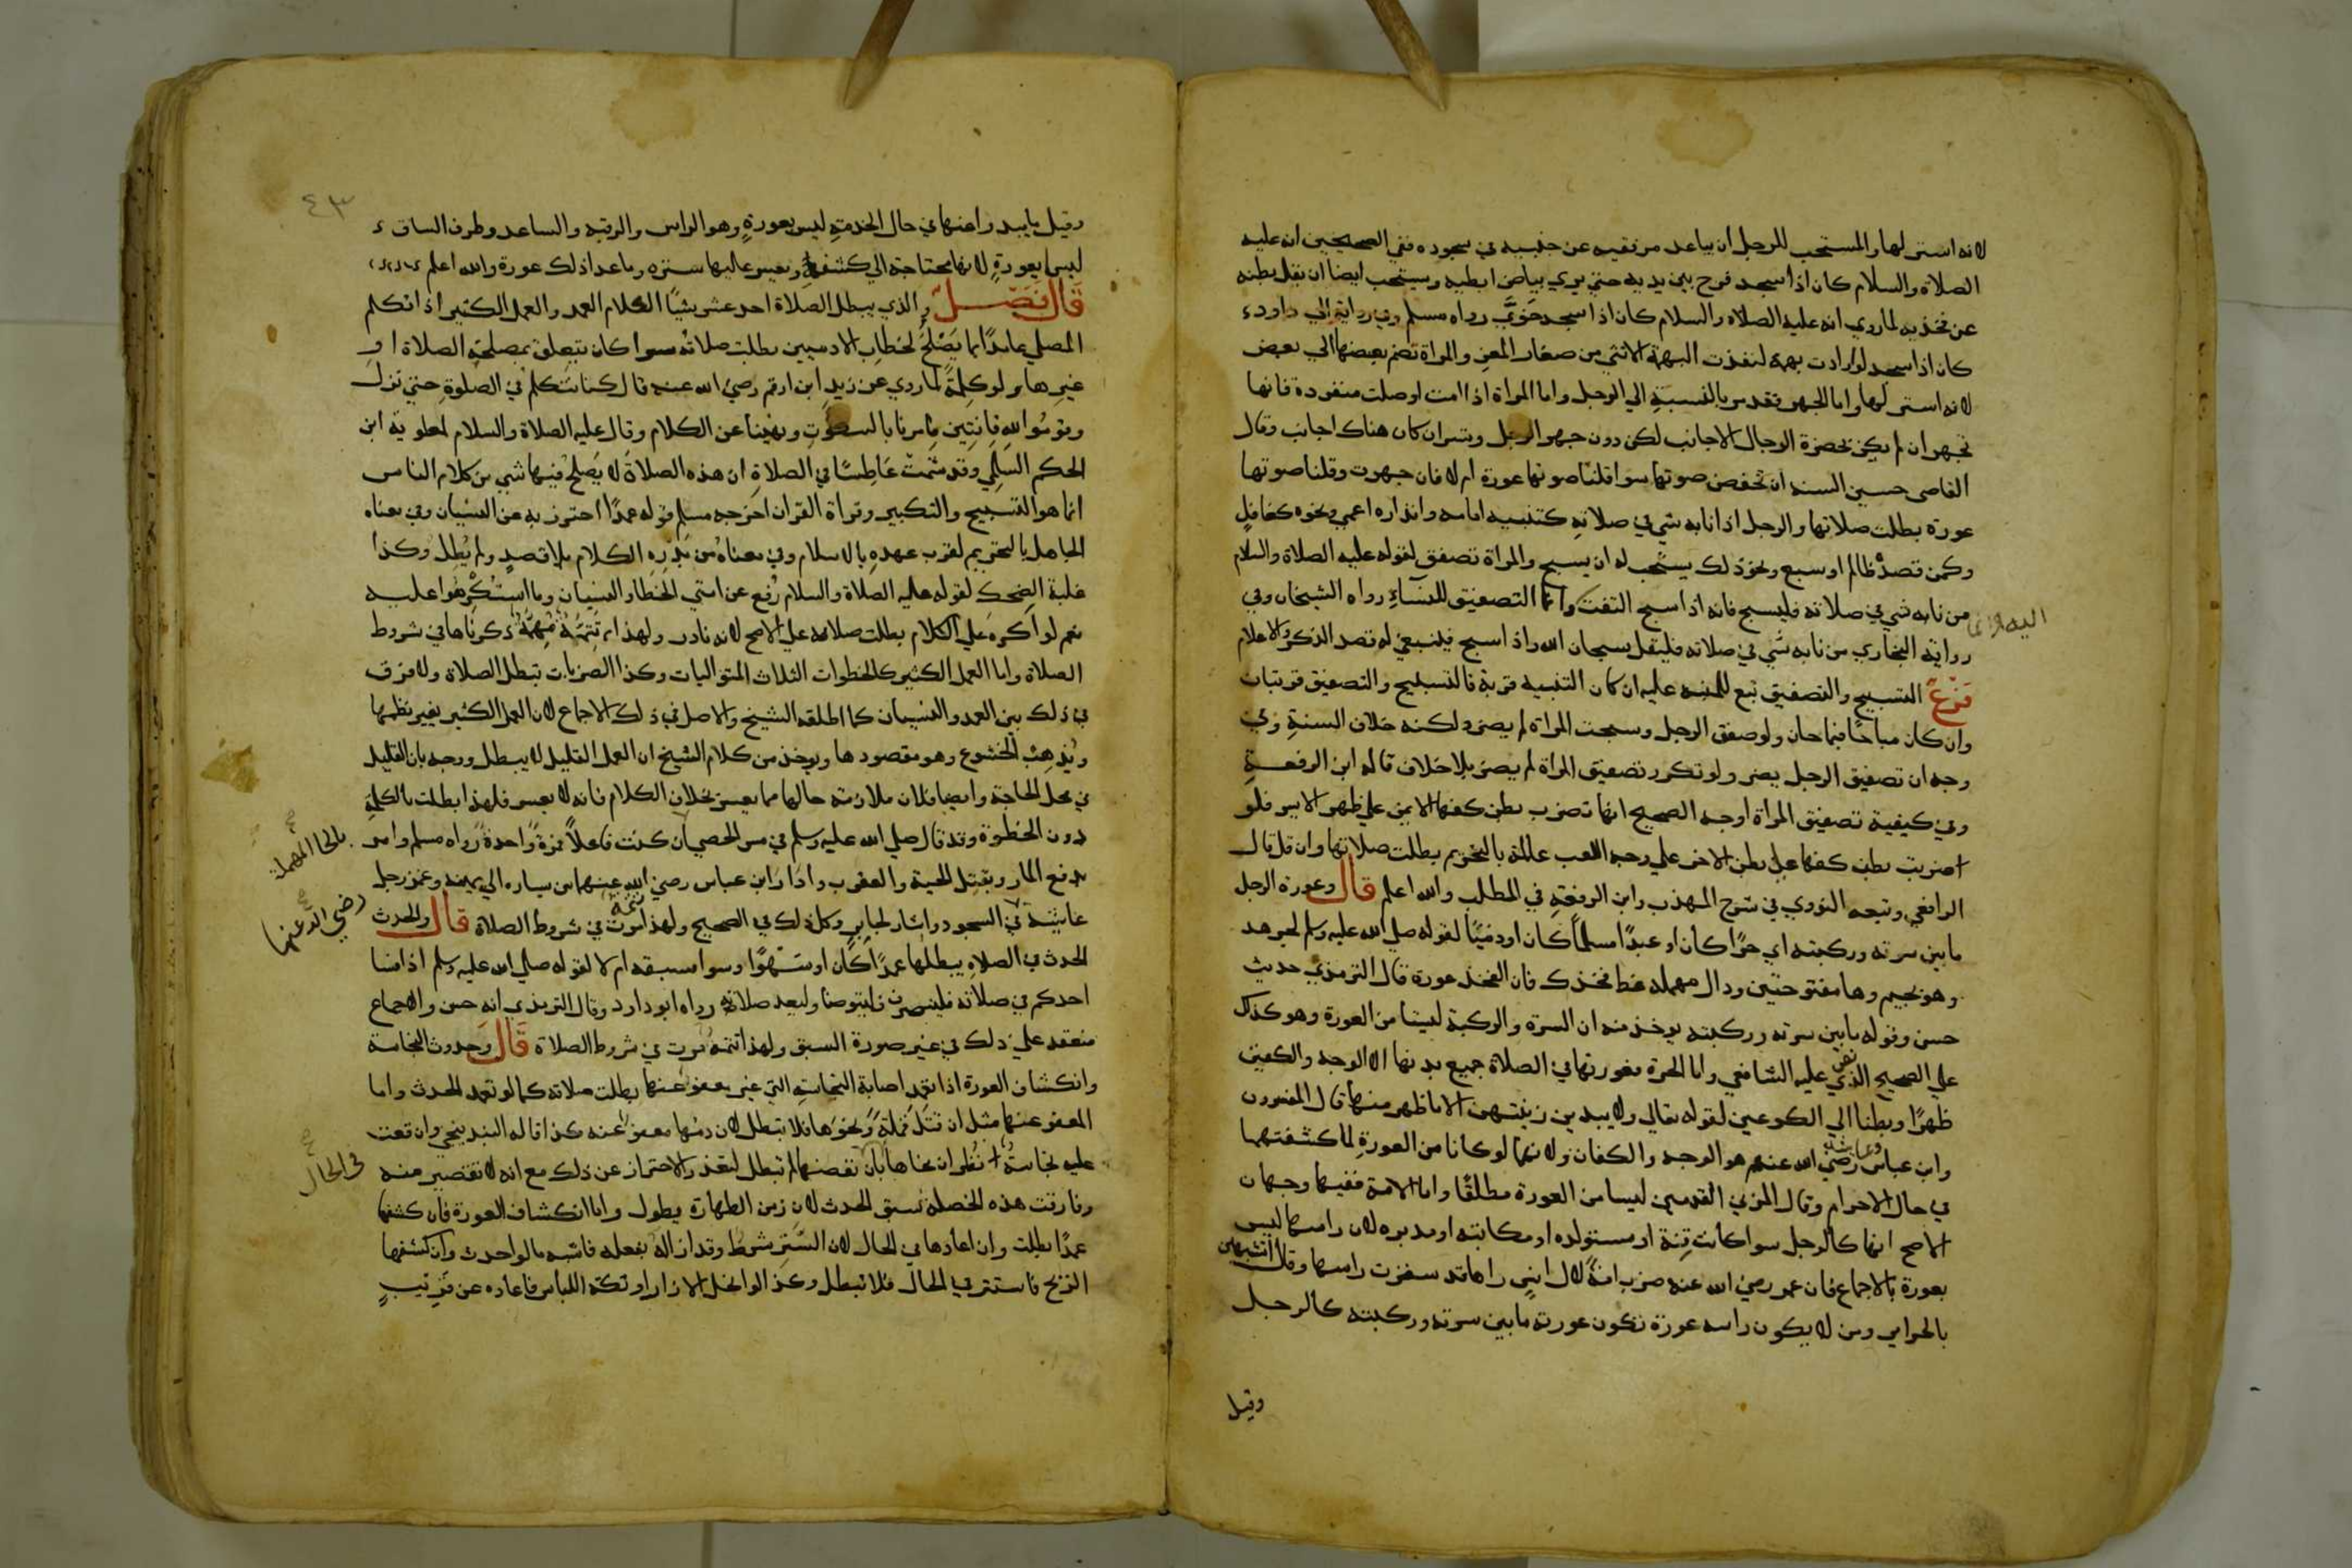 لانه استر لها والمستحب للرجل ان يباعد مرفقيه عن جنبيه في سجوده ففي الصحيحين انه عليه
الصلاة والسلام كان اذا سجد فرج بين يديه حتى يري بياض ابطيه ويستحب ايضا ان يقل بطنه
عن فخذيه لما روي انه عليه الصلاة والسلام كان اذا سجد خوي رواه مسلم وفي رواية ابي داود
كان اذا سجد لو ارادت بهمة لنفذت البهمة الانثي من صغار المعز والمراة تضم بعضها الي بعض
لانه استر لها واما الجهر فقد مر بالنسبة الي الرجل واما المراة اذا امت او صلت منفردة فانها
تجهر ان لم يكن بحضرة الرجال الاجانب لكن دون جهر الرجل وتسر ان كان هناك اجانب وقال
القاضي حسين السنة ان تخفض صوتها سوا قلنا صوتها عورة ام لا فان جهرت وقلنا صوتها
عورة بطلت صلاتها والرجل اذا نابه شي في صلاته كتنبيه امامه وانذاره اعمي ونحوه كغافل
وكمن قصده ظالم او سبع ونحو ذلك يستحب له ان يسبح والمراة تصفق لقوله عليه الصلاة والسلام
من نابه شي في صلاته فليسبح فانه اذا سبح التفت وانما التصفيق للنساء رواه الشيخان وفي
اليه وانما
رواية البخاري من نابه شي في صلاته فليقل سبحان الله واذا سبح فينبغي له قصد الذكر والاعلام
فرع التسبيح والتصفيق تبع للمنبه عليه ان كان التنبيه قربة فالتسبيح والتصفيق قربتان
وان كان مباحا فمباحان ولو صفق الرجل وسبحت المراة لم يضر ولكنه خلاف السنة وفي
وجه ان تصفيق الرجل يضر ولو تكرر تصفيق المراة لم يضر بلا خلاف قاله ابن الرفعة
وفي كيفية تصفيق المراة اوجه الصحيح انها تضرب بطن كفها الايمن علي ظهر الايسر فلو
اضربت بطن كفها علي بطن الاخر علي وجه اللعب عالمة بالتحريم بطلت صلاتها وان قل قال
الرافعي وتبعه النووي في شرح المهذب وابن الرفعة في المطلب والله اعلم قال وعورة الرجل
ما بين سرته وركبته اي حرا كان او عبدا مسلما كان او ذميا لقوله صلي الله عليه وسلم لجرهد
وهو بجيم وها مفتوحتين ودال مهملة غط فخذك فان الفخذ عورة قال الترمذي حديث
حسن وقوله ما بين سرته وركبته يوخذ منه ان السرة والركبة ليستا من العورة وهو كذلك
علي الصحيح الذي نص عليه الشافعي واما الحرة فعورتها في الصلاة جميع بدنها الا الوجه والكفين
ظهرا وبطنا الي الكوعين لقوله تعالي ولا يبدين زينتهن الا ما ظهر منها قال المفسرون
وابن عباس وعائشة رضي الله عنهم هو الوجه والكفان ولانهما لو كانا من العورة لما كشفتهما
في حال الاحرام وقال المزني القدمين ليسا من العورة مطلقا واما الامة ففيها وجهان
الاصح انها كالرجل سوا كانت قنة او مستولدة او مكاتبة او مدبرة لان راسها ليس
بعورة بالاجماع فان عمر رضي الله عنه ضرب امة لال انس راها قد سترت راسها وقال اتتشبهين
بالحراير ومن لا يكون راسه عورة تكون عورته ما بين سرته وركبته كالرجل
وقيل
٤٣
وقيل ما يبدوا منها في حال الخدمة ليس بعورة وهو الراس والرقبة والساعد وطرف الساق
ليس بعورة لانها محتاجة الي كشفه ويعسر عليها ستره وما عدا ذلك عورة والله اعلم
قال فصل والذي يبطل الصلاة احد عشر شيئا الكلام العمد والعمل الكثير اذا تكلم
المصلي عامدا بما يصلح لخطاب الادميين بطلت صلاته سوا كان يتعلق بمصلحة الصلاة او
غيرها ولو كلمة لما روي عن زيد ابن ارقم رضي الله عنه قال كنا نتكلم في الصلوة حتي نزل
وقوموا لله قانتين فامرنا بالسكوت ونهينا عن الكلام وقال عليه الصلاة والسلام لمعاوية ابن
الحكم السلمي وقد شمت عاطسا في الصلاة ان هذه الصلاة لا يصلح فيها شي من كلام الناس
انما هو التسبيح والتكبير وقراة القران اخرجه مسلم قوله عمدا احترز به عن النسيان وفي معناه
الجاهل بالتحريم لقرب عهده بالاسلام وفي معناه من بدره الكلام بلا قصد ولم يطل وكذا
غلبة الضحك لقوله عليه الصلاة والسلام رفع عن امتي الخطا والنسيان وما استكرهوا عليه
نعم لو اكره علي الكلام بطلت صلاته علي الاصح لانه نادر ولهذا تتمة مهمة ذكرناها في شروط
الصلاة واما العمل الكثير كالخطوات الثلاث المتواليات وكذا الضربات تبطل الصلاة ولا فرق
في ذلك بين العمد والنسيان كما اطلقه الشيخ والاصل في ذلك الاجماع لان العمل الكثير يغير نظمها
ويذهب الخشوع وهو مقصودها ويوخذ من كلام الشيخ ان العمل القليل لا يبطل ووجه بان القليل
في محل الحاجة وايضا فلان ملازمة حالها مما يعسر بخلاف الكلام فانه لا يعسر فلهذا بطلت بالكلمة
دون الخطوة وقد قال صلي الله عليه وسلم في مس الحصي ان كنت فاعلا فمرة واحدة رواه مسلم وامر
بالحا المهملة صح
بدفع المار وبقتل الحية والعقرب وادار ابن عباس رضي الله عنهما من يساره الي يمينه وغمز رجل
عائشة في السجود واشار لجابر وكل ذلك في الصحيح ولهذا تتمة مرت في شروط الصلاة قال والحدث
رضي الله عنها صح
الحدث في الصلاة يبطلها عمدا كان او سهوا وسوا سبقه ام لا لقوله صلي الله عليه وسلم اذا فسا
احدكم في صلاته فلينصرف فليتوضا وليعد صلاته رواه ابو داود وقال الترمذي انه حسن والاجماع
منعقد علي ذلك في غير صورة السبق ولهذا تتمة مرت في شروط الصلاة قال وحدوث النجاسة
وانكشاف العورة اذا تعمد اصابة النجاسة التي غير معفو عنها بطلت صلاته كما لو تعمد الحدث واما
المعفو عنها مثل ان قتل قملة ونحوها فلا تبطل لان دمها معفو عنه كذا قاله البندنيجي وان وقعت
عليه نجاسة نظر ان نحاها بان نفضها لم تبطل لتعذر الاحتراز عن ذلك مع انه لا تقصير منه
في الحال صح
وفارقت هذه الخصلة سبق الحدث لان زمن الطهارة يطول واما انكشاف العورة فان كشفها
عمدا بطلت وان اعادها في الحال لان الستر شرط وقد ازاله بفعله فاشبه ما لو احدث وان كشفها
الريح فاستتر في الحال فلا تبطل وكذا لو انحل الازار او تكة اللباس فاعاده عن قريب